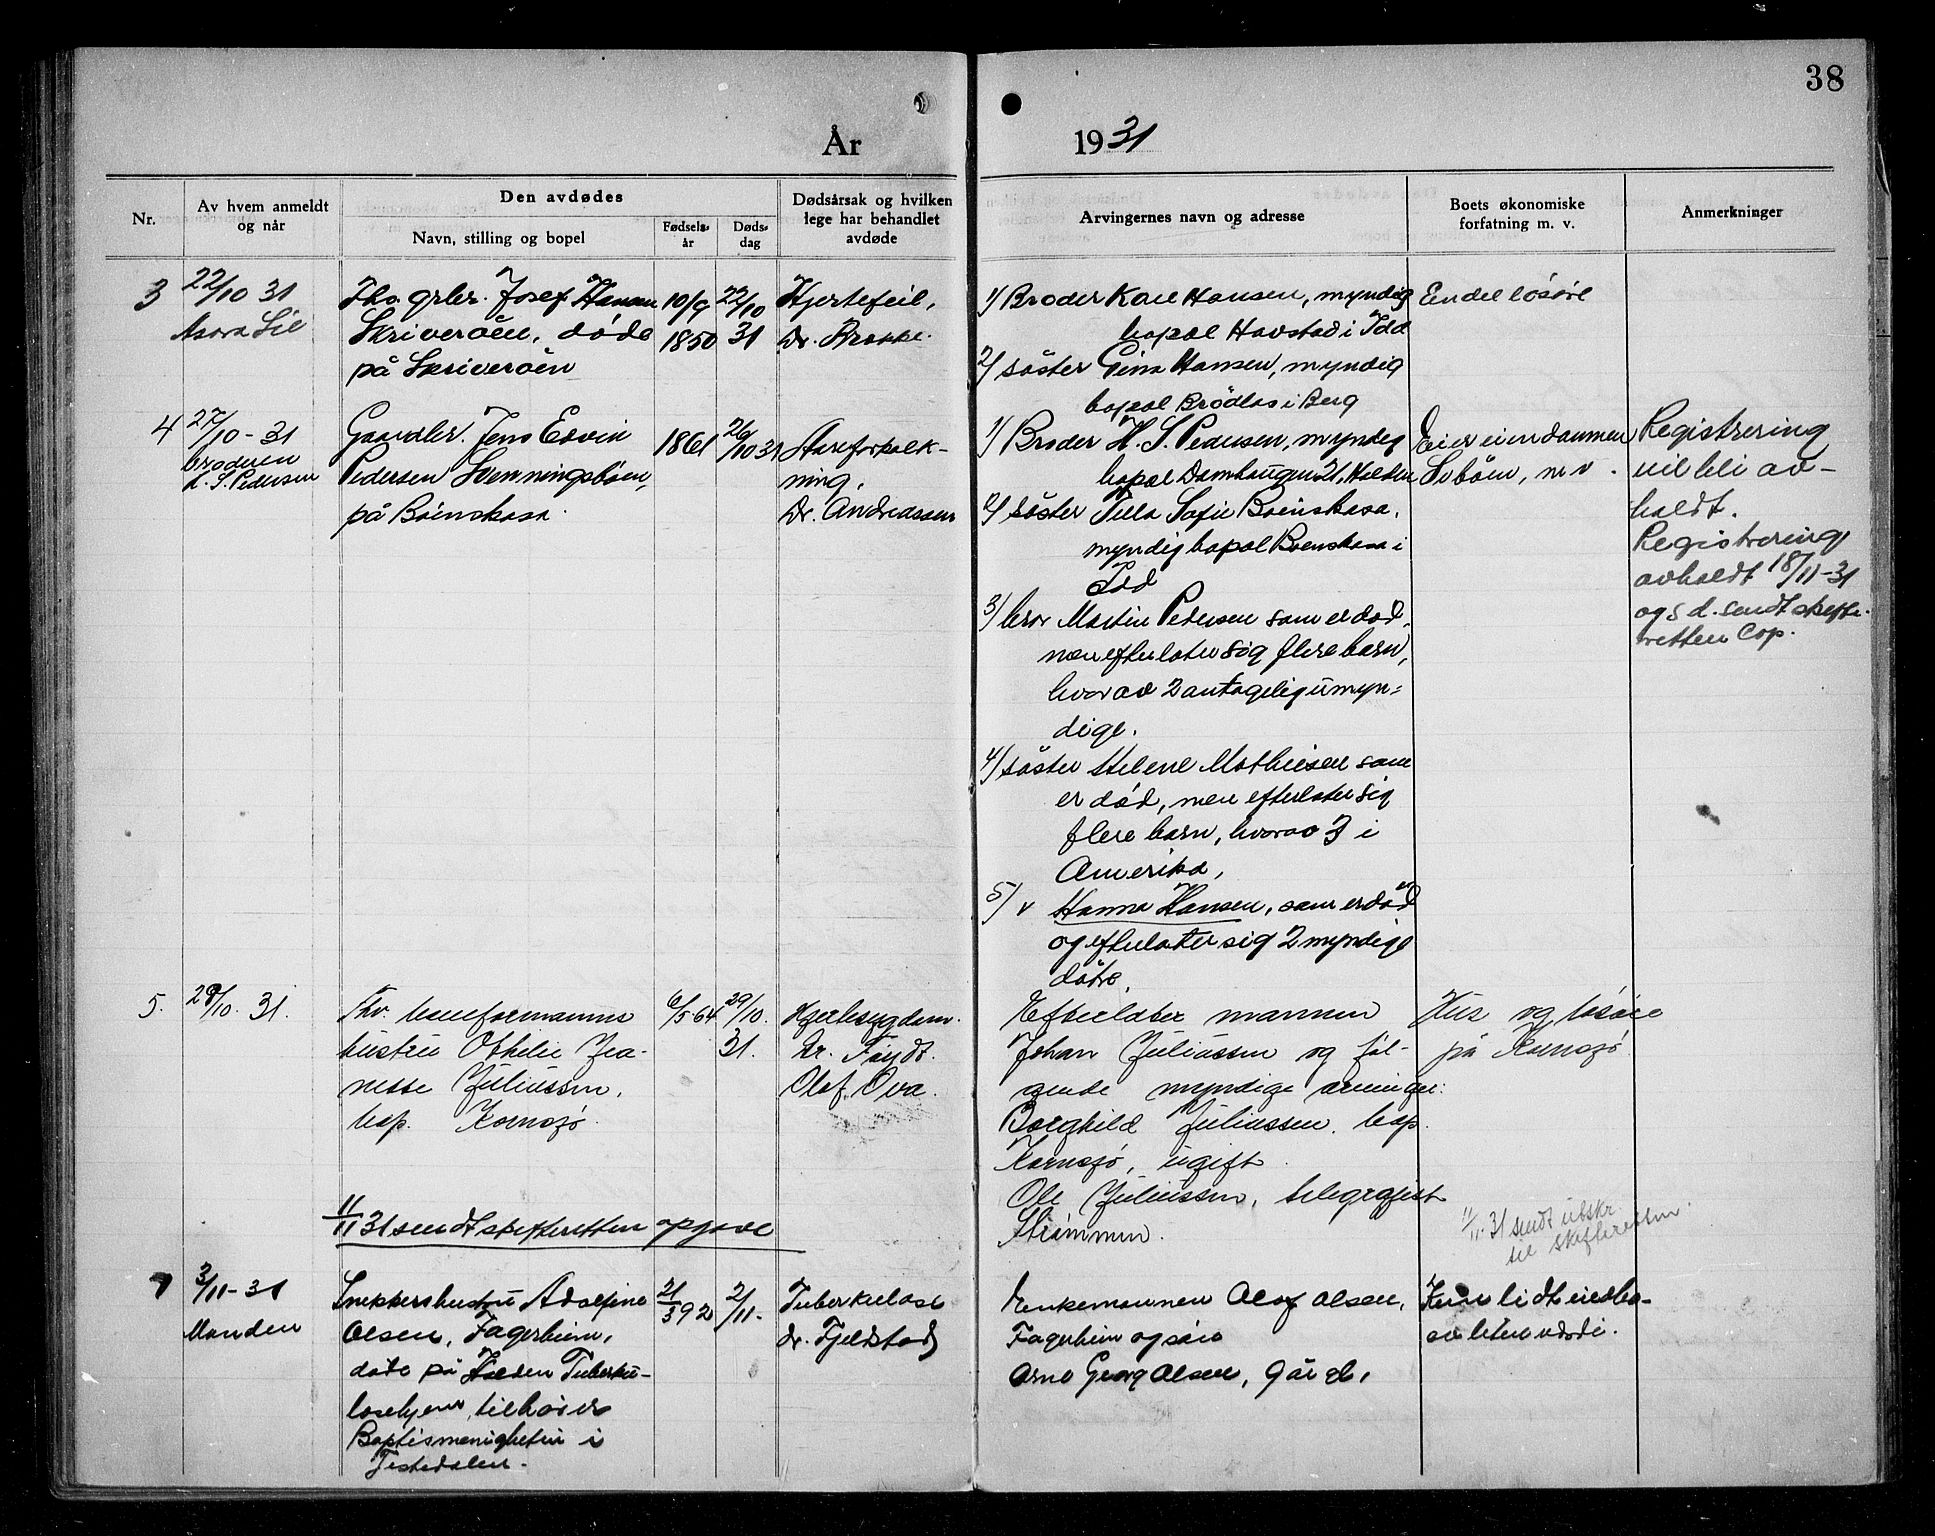 38
År 1931
Nr.
Av hvem anmeldt og når
Den avdødes
Navn, stilling og bopel
Fødsels-år
Døds-dag
Dødsårsak og hvilken lege har behandlet avdøde
Arvingernes navn og adresse
Boets økonomiske forfatning m. v.
Anmerkninger
3
22/10 31
Josef Hansen
Skriverøen, døde
på Skriverøen
10/9
1850
22/10
31
Hjertefeil,
Dr.
1/ Broder Karl Hansen, myndig
bopæl Havstad i Idd
2/ søster Gina Hansen, myndig
bopæl Brødløs i Berg
Endel løsøre
4
27/10 - 31
broderen
H. S. Pedersen
Gaardbr. Jens Edvin
Pedersen Svenningsbøen,
på Bøenskasa.
1861
26/10 31
Areforkalk-
ning,
Dr. Andreassen
1/ Broder H. S. Pedersen, myndig
bopæl Damhaugen 21, Halden
2/ søster Sofie Bøenskasa,
myndig bopæl Bøenskasa i
Idd
3/ bror Martin Pedersen som er død,
men efterlater sig flere barn,
hvorav 2 antagelig umyn-
dige.
4/ søster Helene Mathisen som
er død, men efterlater sig
flere barn, hvorav 3 i
Amerika,
5/ v Hanna Hansen, som er død
og efterlater sig 2 myndige
døtre,
Eier eiendommen
m v.
Registrering
vil bli av-
holdt.
Registrering
avholdt 18/11-31
og s. d. sendt skifte-
retten Cop.
5.
29/10. 31.
Fhv. baneformanns
hustru Othilie Jea-
nette Juliussen,
bop. Kornsjø.
6/5 64
29/10.
31.
Hjertesygdom.
Dr.
Olaf Ova.
Efterlater mannen
Johan Juliussen og føl-
gende myndige arvinger:
Borghild Juliussen, bop.
Kornsjø, ugift.
Ole Juliussen, telegrafist
Strømmen.
Hus og løsøre
på Kornsjø
11/11 31 sendt skifteretten opgave
11/11. 31 sendt utskr.
til skifteretten.
3/11-31
Manden
Snekkerhustru Adolfine
Olsen, Fagerheim,
døde på Halden Tuberku-
losehjem, tilhører
Baptismenigheten i
Tistedalen.
21/3 92
2/11-
Tuberkulose
dr. Fjeldstad
Enkemannen Olaf Olsen,
Fagerheim og søn
Arne Georg Olsen, 9 år gl,
Kun lidt indbo
av liten værdi.